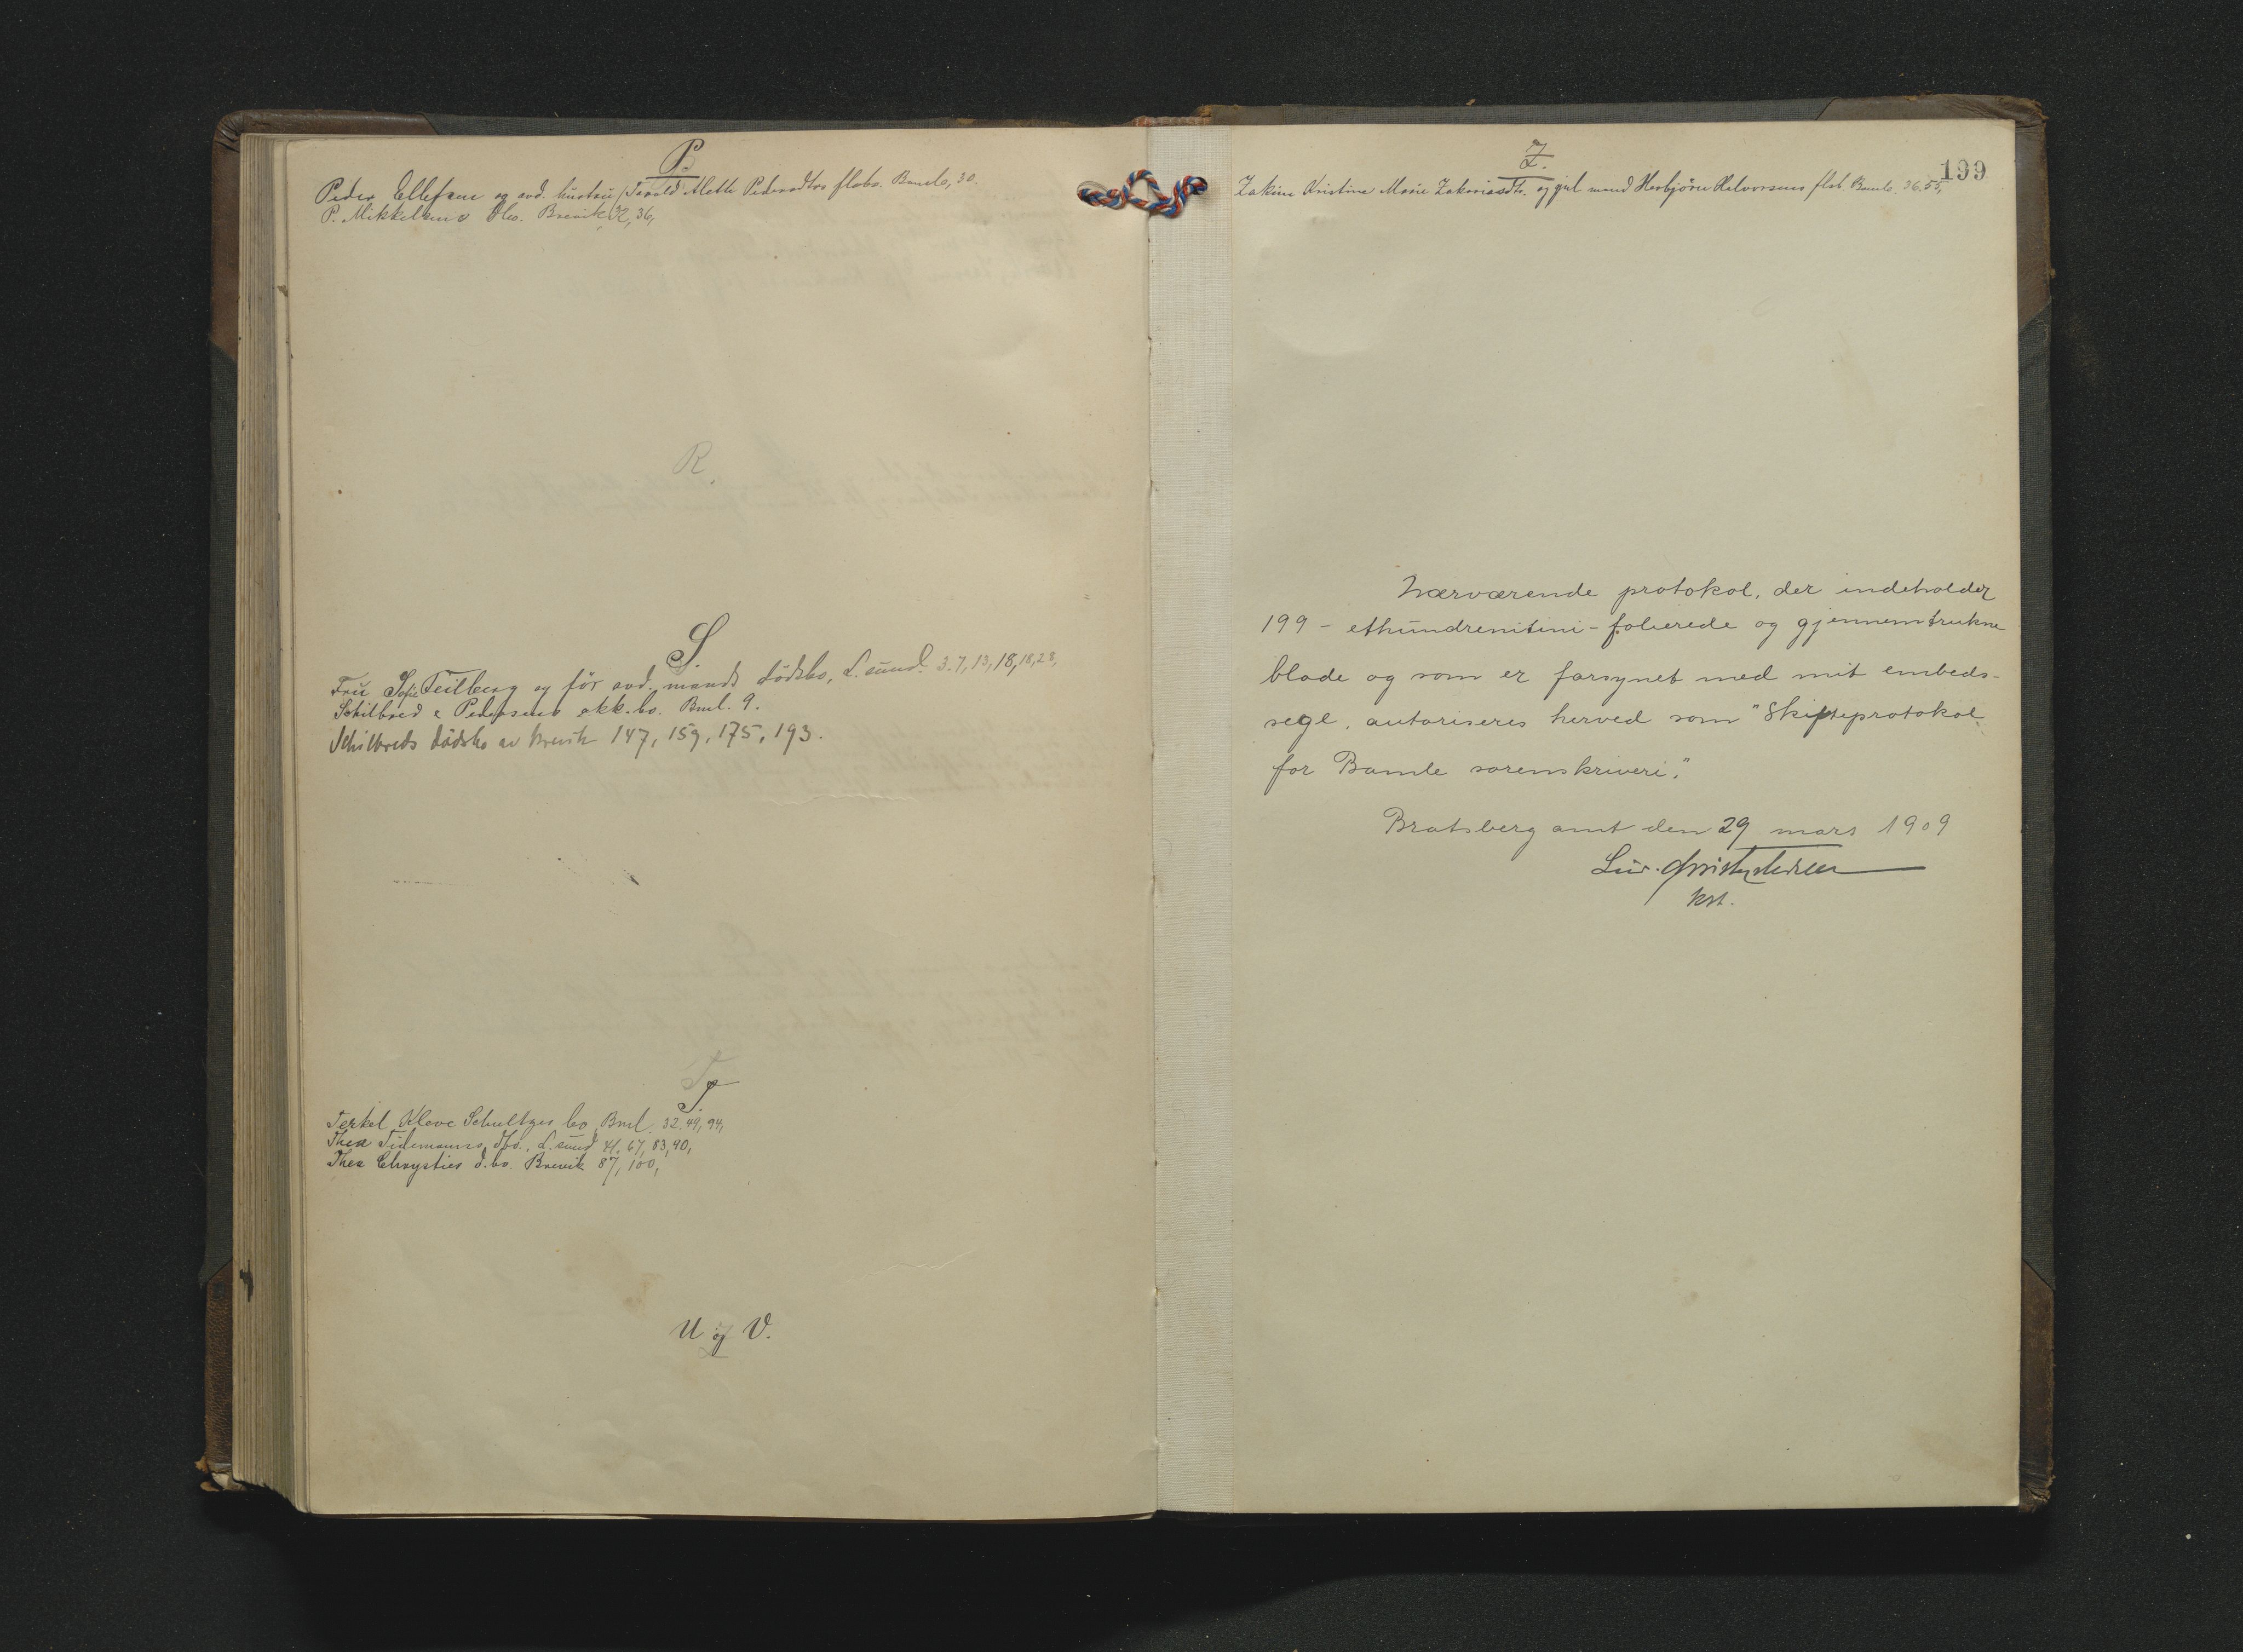 P.
Peder Ellefsens og avd. hustru Mette Pedersdtrs flsbo. Bamle, 30.
P. Mikkelsens bo. Brevik, 32, 36,
R.
S.
Fru Sofie Teilberg og før avd. mands dødsbo, L.sund. 3.7, 13, 18, 18, 28,
Schilbred & Pedersens akk.bo. Bml. 9.
Schilbreds dødsbo av Brevik 147, 159, 175, 193.
T.
Terkel Kleve Schultzes bo, Bml. 32. 49, 94,
Thea Tidemanns dbo., L.sund 41, 67, 83, 90,
Thea Chrysties d.bo. Brevik 87, 100,
U og V.
199
Z.
Zakine Kristine Marie Zakariasdtr. og gjel. mand Herbjørn Halvorsens flsb Bamle. 36. 55,
Nærværende protokol, der indeholder
199 - ethundrenitini - folierede og gjennemtrukne
blade og som er forsynet med mit embeds-
segl, autoriseres herved som "Skifteprotokol
for Bamle sorenskriveri."
Bratsberg amt den 29 mars 1909
kst.